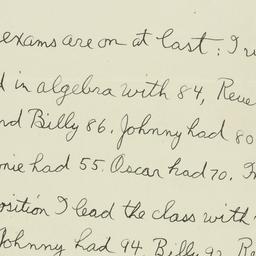 exams are on at last: I
in algebra with 84,
Billy 86. Johnny had 80
had 55. Oscar had 70.
I lead the class with
Johnny had 94. Billy 92